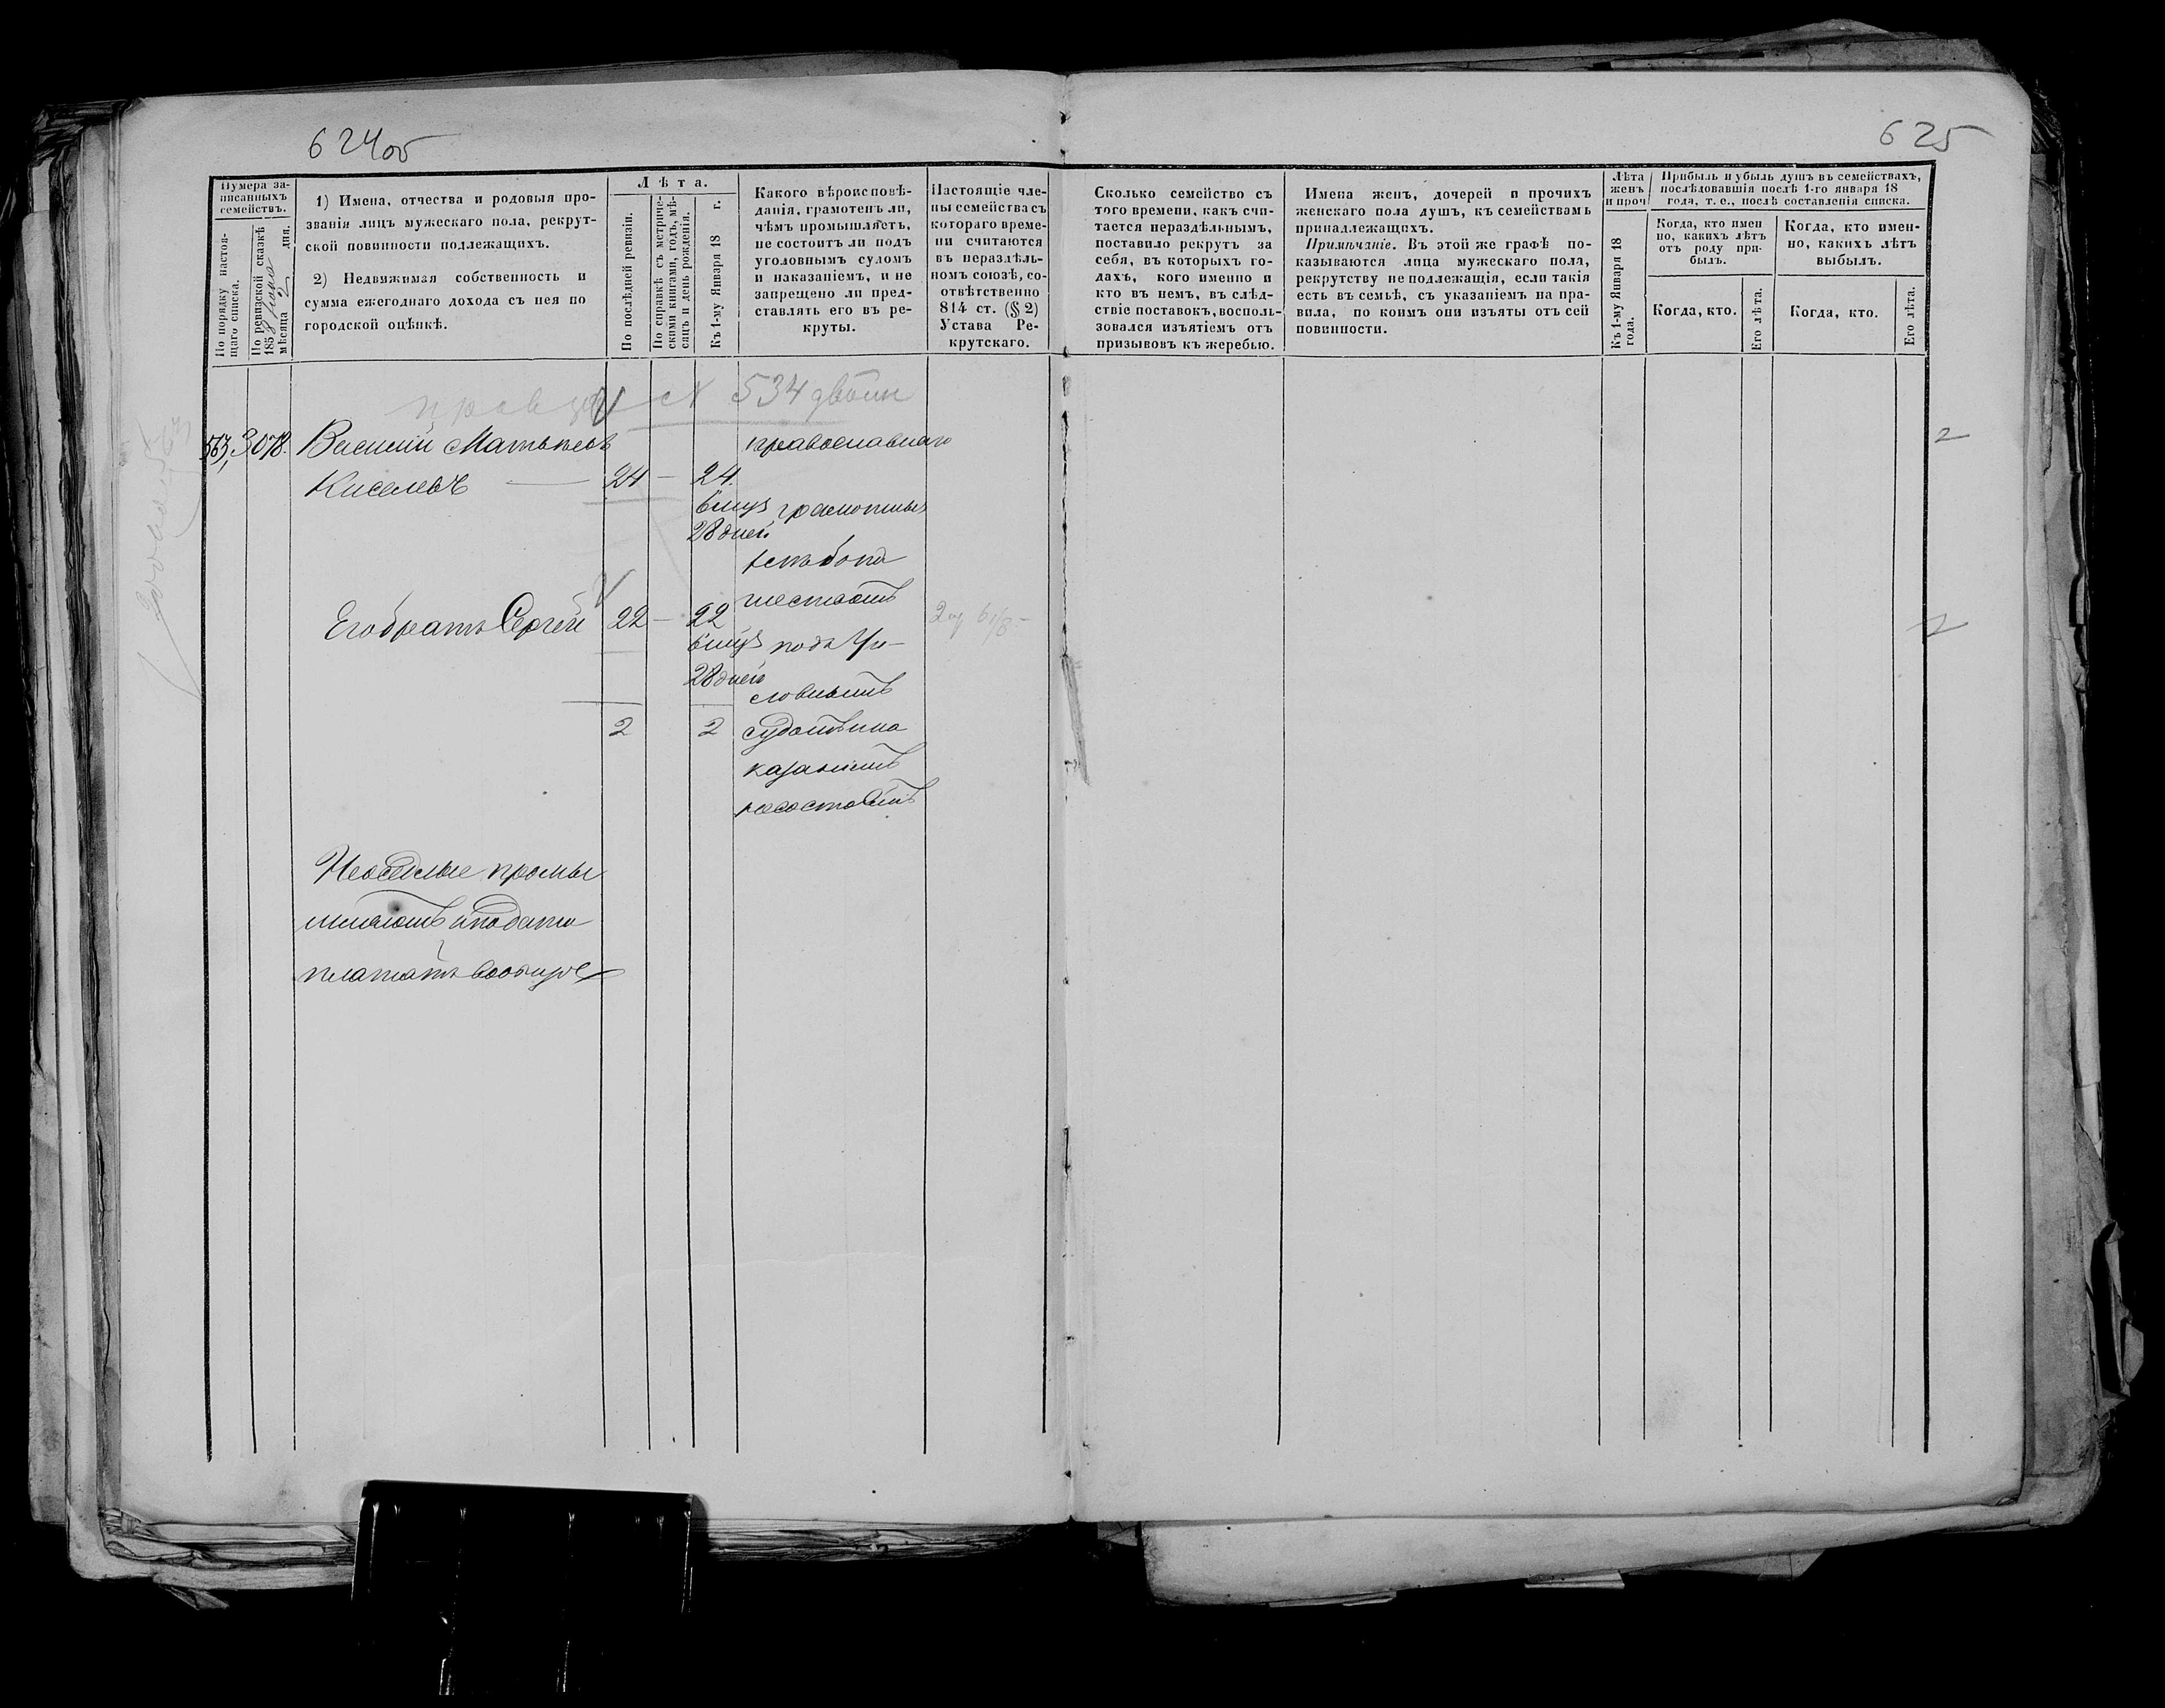 624об
625
Нумера за-
писанныхъ
семействъ.
По порядку настоя-
щаго списка.
По ревизской сказкѣ
1858
мѣсяца 2 дня.
1) Имена, отчества и родовыя про-
званія лицъ мужескаго пола, рекрут-
ской повинности подлежащихъ.
2) Недвижимая собственность и
сумма ежегоднаго дохода съ нея по
городской оцѣнкѣ.
Лѣта.
По послѣдней ревизіи.
По справкѣ съ метриче-
скими книгами, годъ, мѣ-
сяцъ и день рожденія.
Къ 1-му Января 18 г.
Какого вѣроисповѣ-
данія, грамотенъ ли,
чѣмъ промышляетъ,
не состоитъ ли подъ
уголовнымъ судомъ
и наказаніемъ, и не
запрещено ли пред-
ставлять его въ ре-
круты.
Настоящіе чле-
ны семейства съ
котораго време-
ни считаются
въ нераздѣль-
номъ союзѣ, со-
отвѣтственно
814 ст. (§ 2)
Устава Ре-
крутскаго.
Сколько семейство съ
того времени, какъ счи-
тается нераздѣльнымъ,
поставило рекрутъ за
себя, въ которыхъ го-
дахъ, кого именно и
кто въ немъ, въ слѣд-
ствіе поставокъ, восполь-
зовался изъятіемъ отъ
призывовъ къ жеребью.
Имена женъ, дочерей и прочихъ
женскаго пола душъ, къ семействамъ
принадлежащихъ.
Примѣчаніе. Въ этой же графѣ по-
казываются лица мужескаго пола,
рекрутству не подлежащія, если такія
есть въ семьѣ, съ указаніемъ на пра-
вила, по коимъ они изъяты отъ сей
повинности.
Лѣта
женъ
и проч
Къ 1-му Января 18
года.
Прибыль и убыль душъ въ семействахъ,
послѣдовавшія послѣ 1-го января 18
года, т. е., послѣ составленія списка.
Когда, кто имен
но, какихъ лѣтъ
отъ роду при-
былъ.
Когда, кто имен-
но, какихъ лѣтъ
выбылъ.
Когда, кто.
Его лѣта.
Когда, кто.
Его лѣта.
№ 534 двойн
563, 3078. Василий Матвѣевъ
православнаго
2
Киселевъ — 24 — 24.
6 мцъ грамотны
28 дней
Его братъ Сергей 22 — 22
2
6 мцъ подъ Уго-
28 дней
ловнымъ
2 2 судомъ и на
казанiемъ
несостоятъ
Неоседлые промы
шляютъ и подати
платятъ вообще